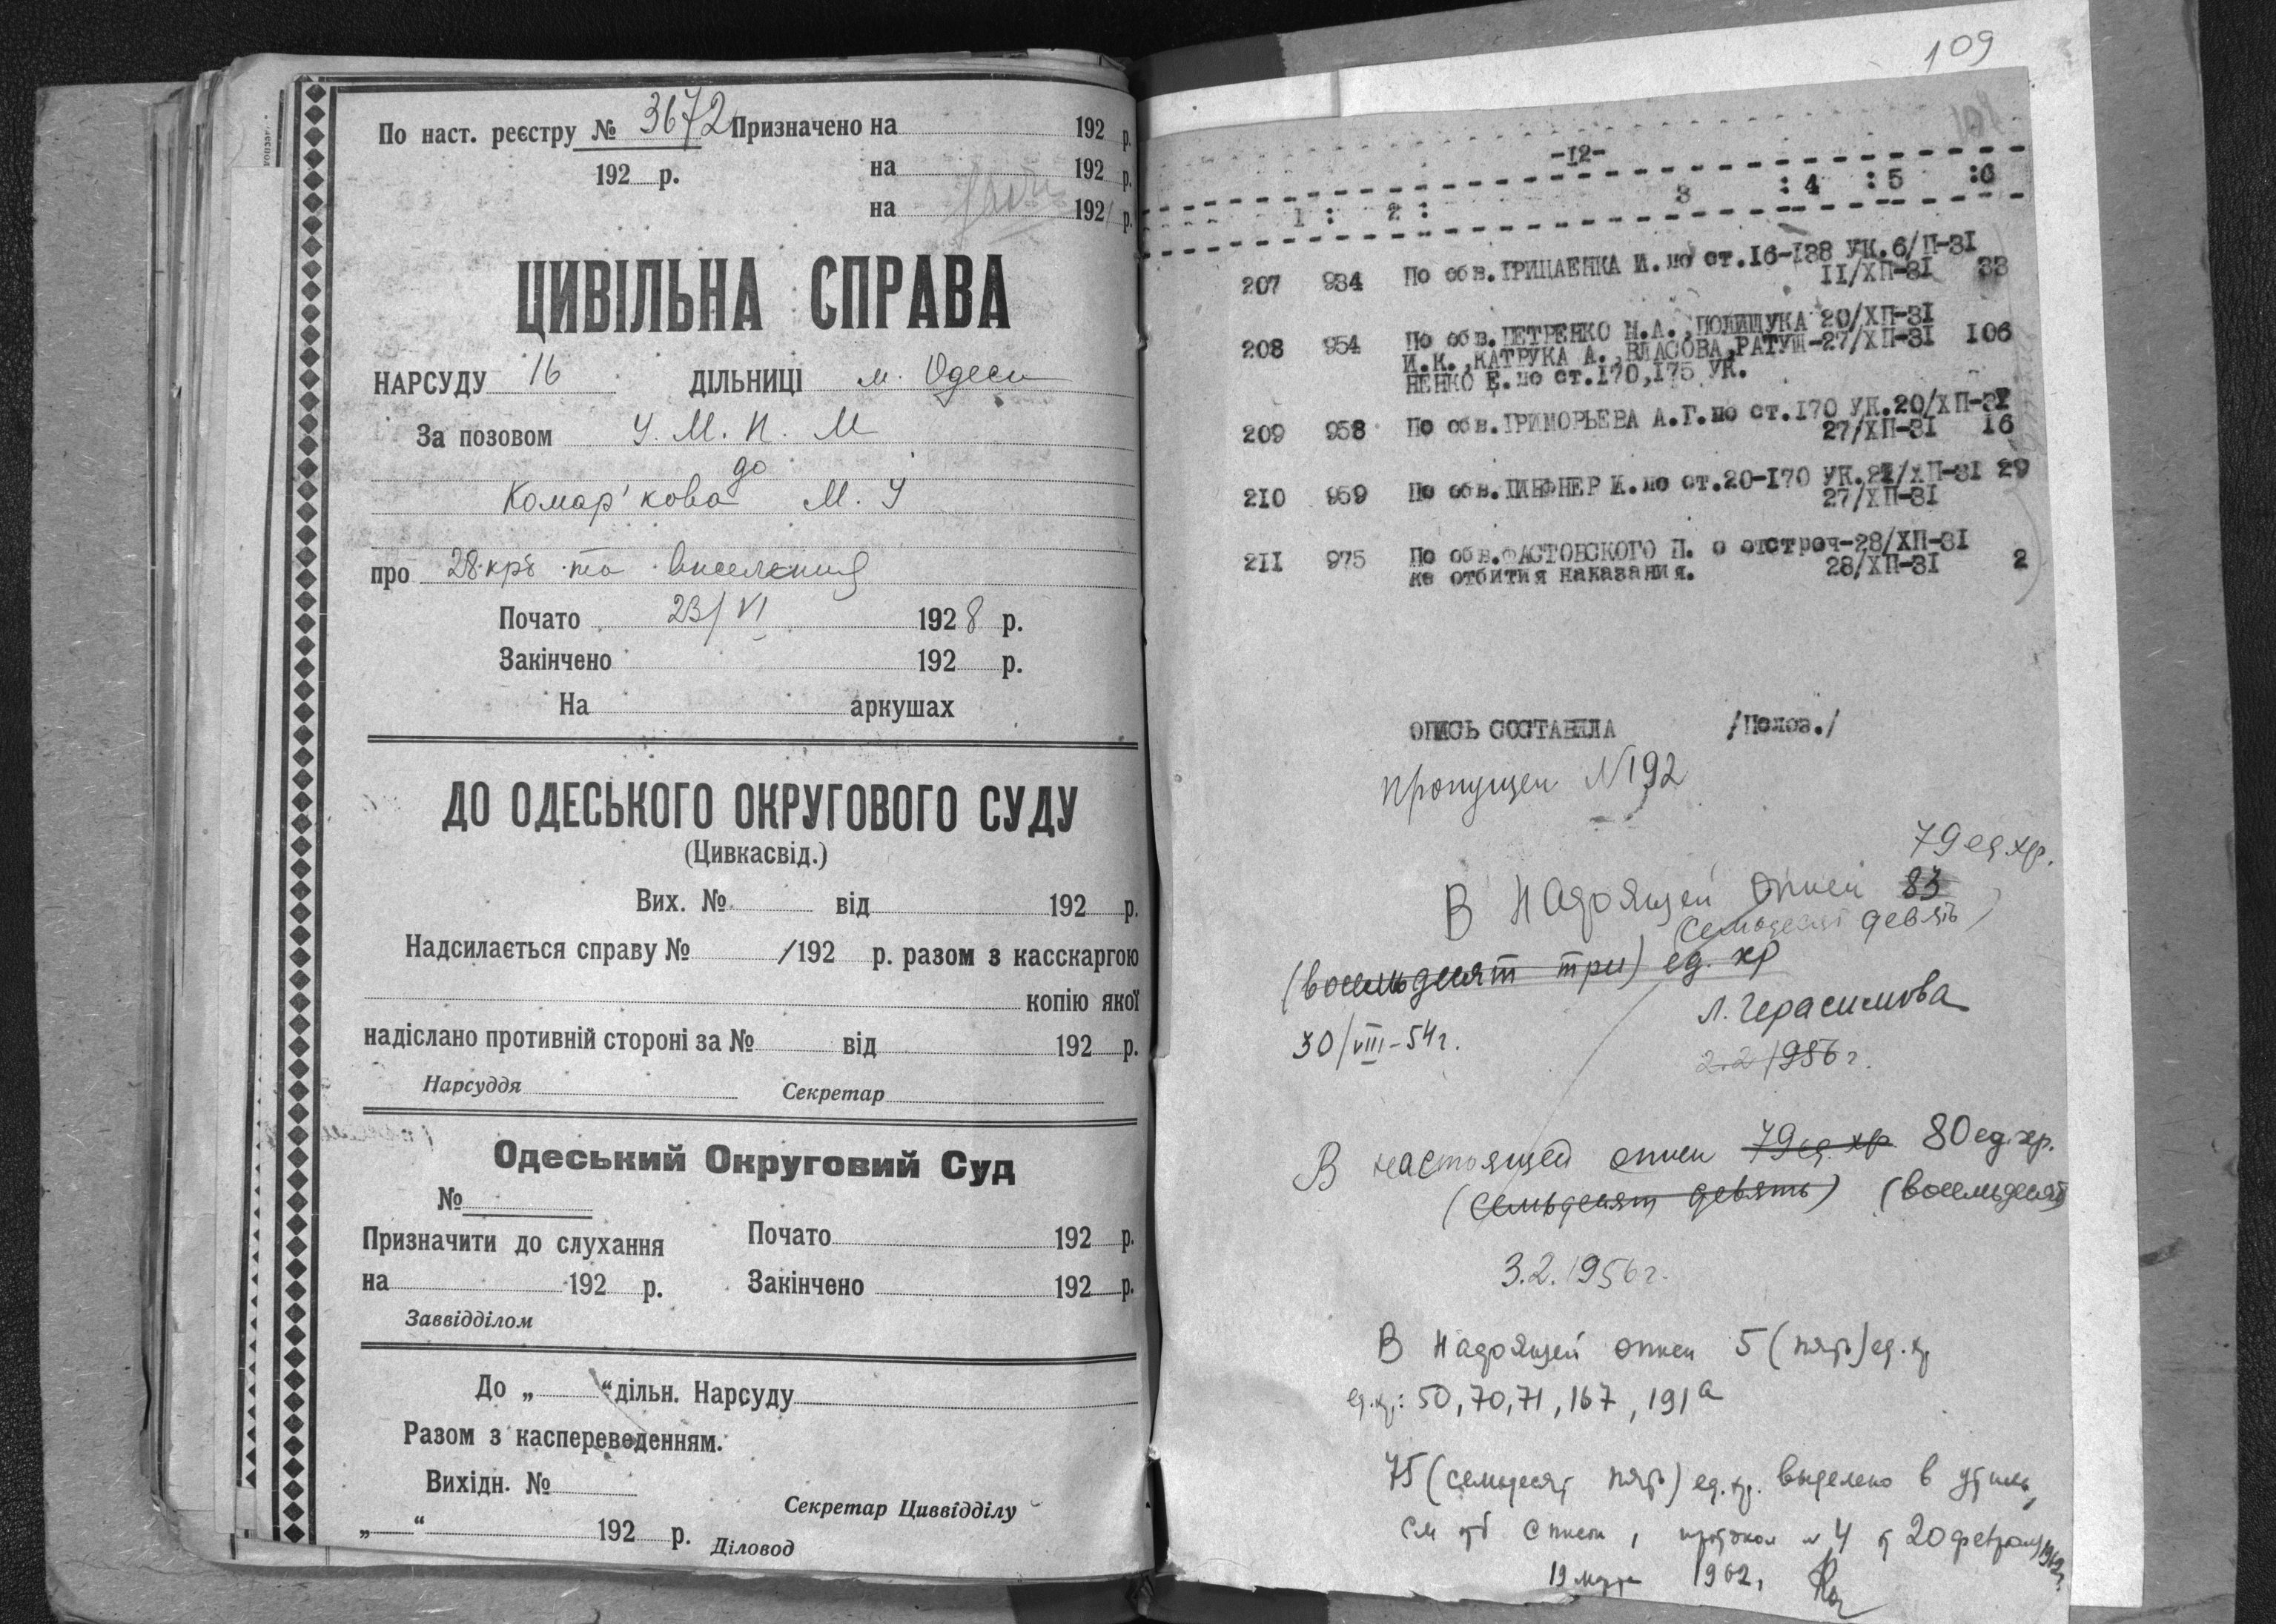 По наст. реєстру № 3672 Призначено на 192 р.
192 р. на 192 р.
на 192 р.
ЦИВІЛЬНА СПРАВА
НАРСУДУ 16 ДІЛЬНИЦІ м. Одеси
За позовом У. М. Н. М
до
Комар'кова М. У
про 28 крб та виселення
Почато 23/VI 1928 р.
Закінчено 192 р.
На аркушах
ДО ОДЕСЬКОГО ОКРУГОВОГО СУДУ
(Цивкасвід.)
Вих. № від 192 р.
Надсилається справу № /192 р. разом з касскаргою
копію якої
надіслано противній стороні за № від 192 р.
Нарсуддя Секретар
Одеський Округовий Суд
№
Призначити до слухання Почато 192 р.
на 192 р. Закінчено 192 р.
Заввідділом
До „ “ дільн. Нарсуду
Разом з каспереведенням.
Вихідн. №
Секретар Циввідділу
„ “ 192 р. Діловод
109
-12-
1 : 2 : 3 : 4 : 5 :6
207 934 По обв. ГРИЦАЕНКА И. по ст.16-138 УК. 6/П-31
11/ХП-31 33
208 954 По обв. ПЕТРЕНКО М.А., ПОЛИЩУКА 20/ХП-31
И.К., КАТРУКА А., ВЛАСОВА, РАТУШ-27/ХП-31 106
НЕНКО Е. по ст.170,175 УК.
209 958 По обв. ГРИМОРЬЕВА А.Г. по ст.170 УК. 20/ХП-31
27/ХП-31 16
210 959 По обв. ПИНФНЕР И. по ст.20-170 УК. 21/ХП-31 29
27/ХП-31
211 975 По обв. ФАСТОВСКОГО П. о отстроч-28/ХП-31
ке отбития наказания. 28/ХП-31 2
ОПИСЬ СОСТАВИЛА /Полоз./
Пропущен N192
79 ед хр.
В настоящей описи 83
(семьдесят девять)
(восемьдесят три) ед. хр
Л. Герасимова
30/VIII-54г.
2.2 1956 г.
В настоящей описи 79 ед. хр 80 ед. хр.
(семьдесят девять) (восемьдесят)
3.2.1956г.
В настоящей описи 5 (пять) ед. хр
ед. хр.: 50, 70, 71, 167, 191а
75 (семьдесят пять) ед. хр. выделено в утиль,
см отб списки, протокол № 4 от 20 февраля 1962г.
19 марта 1962,